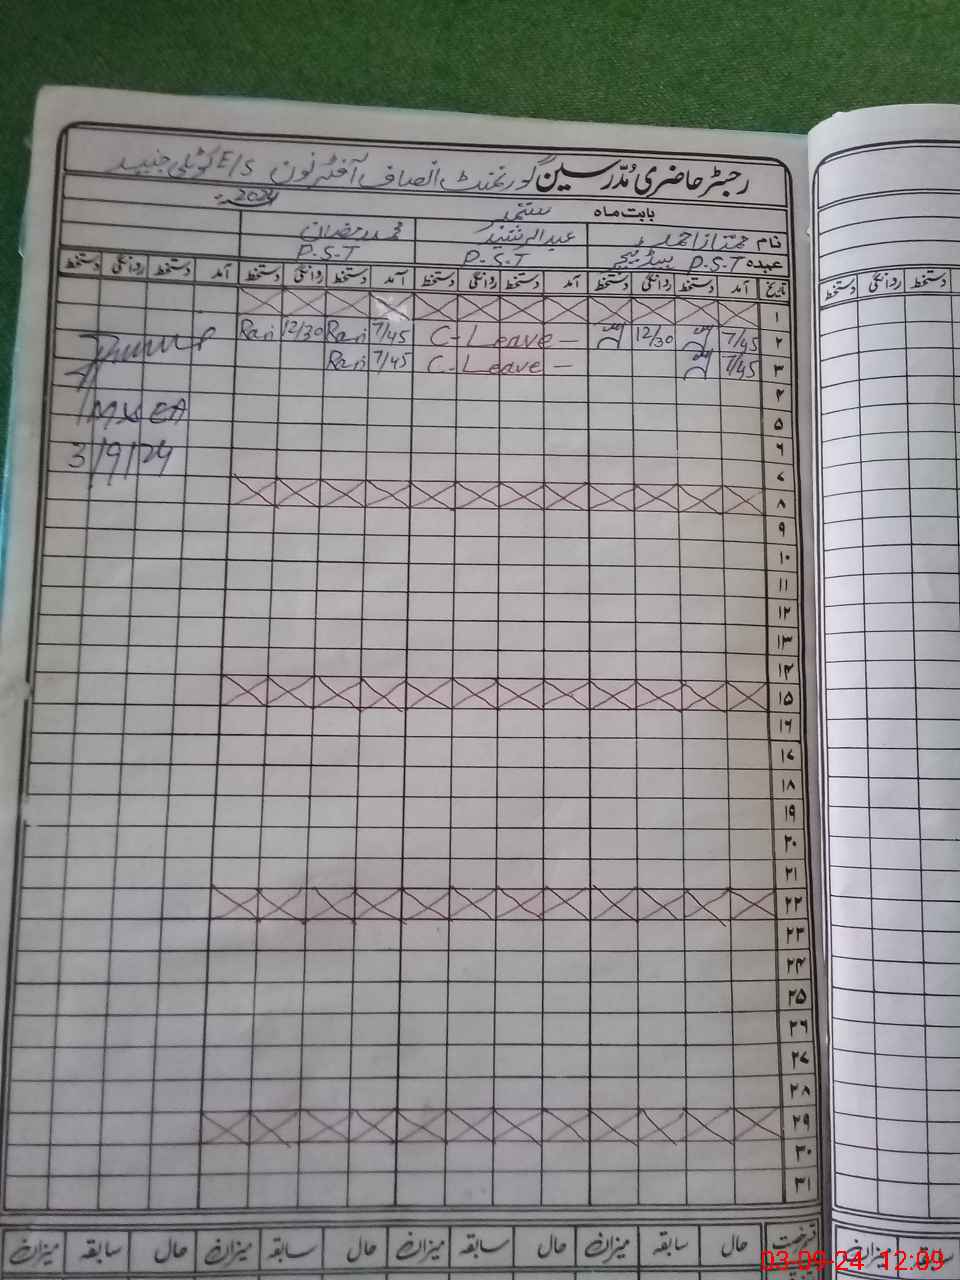 رجسٹر حاضری مدرسین گورنمنٹ انصاف آفٹر نون E/S کوٹلی جنید
بابت ماہ ستمبر 2024ء
نام ممتاز احمد عبدالرشید محمد رمضان
عہدہ P.S.T ہیڈ ٹیچر P.S.T P.S.T
تاریخ آمد دستخط روانگی دستخط آمد دستخط روانگی دستخط آمد دستخط روانگی دستخط آمد دستخط روانگی دستخط
دستخط روانگی دستخط
۱
۲ 7/45 12/30 C-Leave - 7/45 Ran 12/30 Ran
۳ 7/45 C-Leave - 7/45 Ran
۴
۵
۶
3/9/24
۷
۸
۹
۱۰
۱۱
۱۲
۱۳
۱۴
۱۵
۱۶
۱۷
۱۸
۱۹
۲۰
۲۱
۲۲
۲۳
۲۴
۲۵
۲۶
۲۷
۲۸
۲۹
۳۰
۳۱
حال سابقہ میزان حال سابقہ میزان حال سابقہ میزان حال سابقہ میزان
سابقہ میزان
03-09-24 12:09